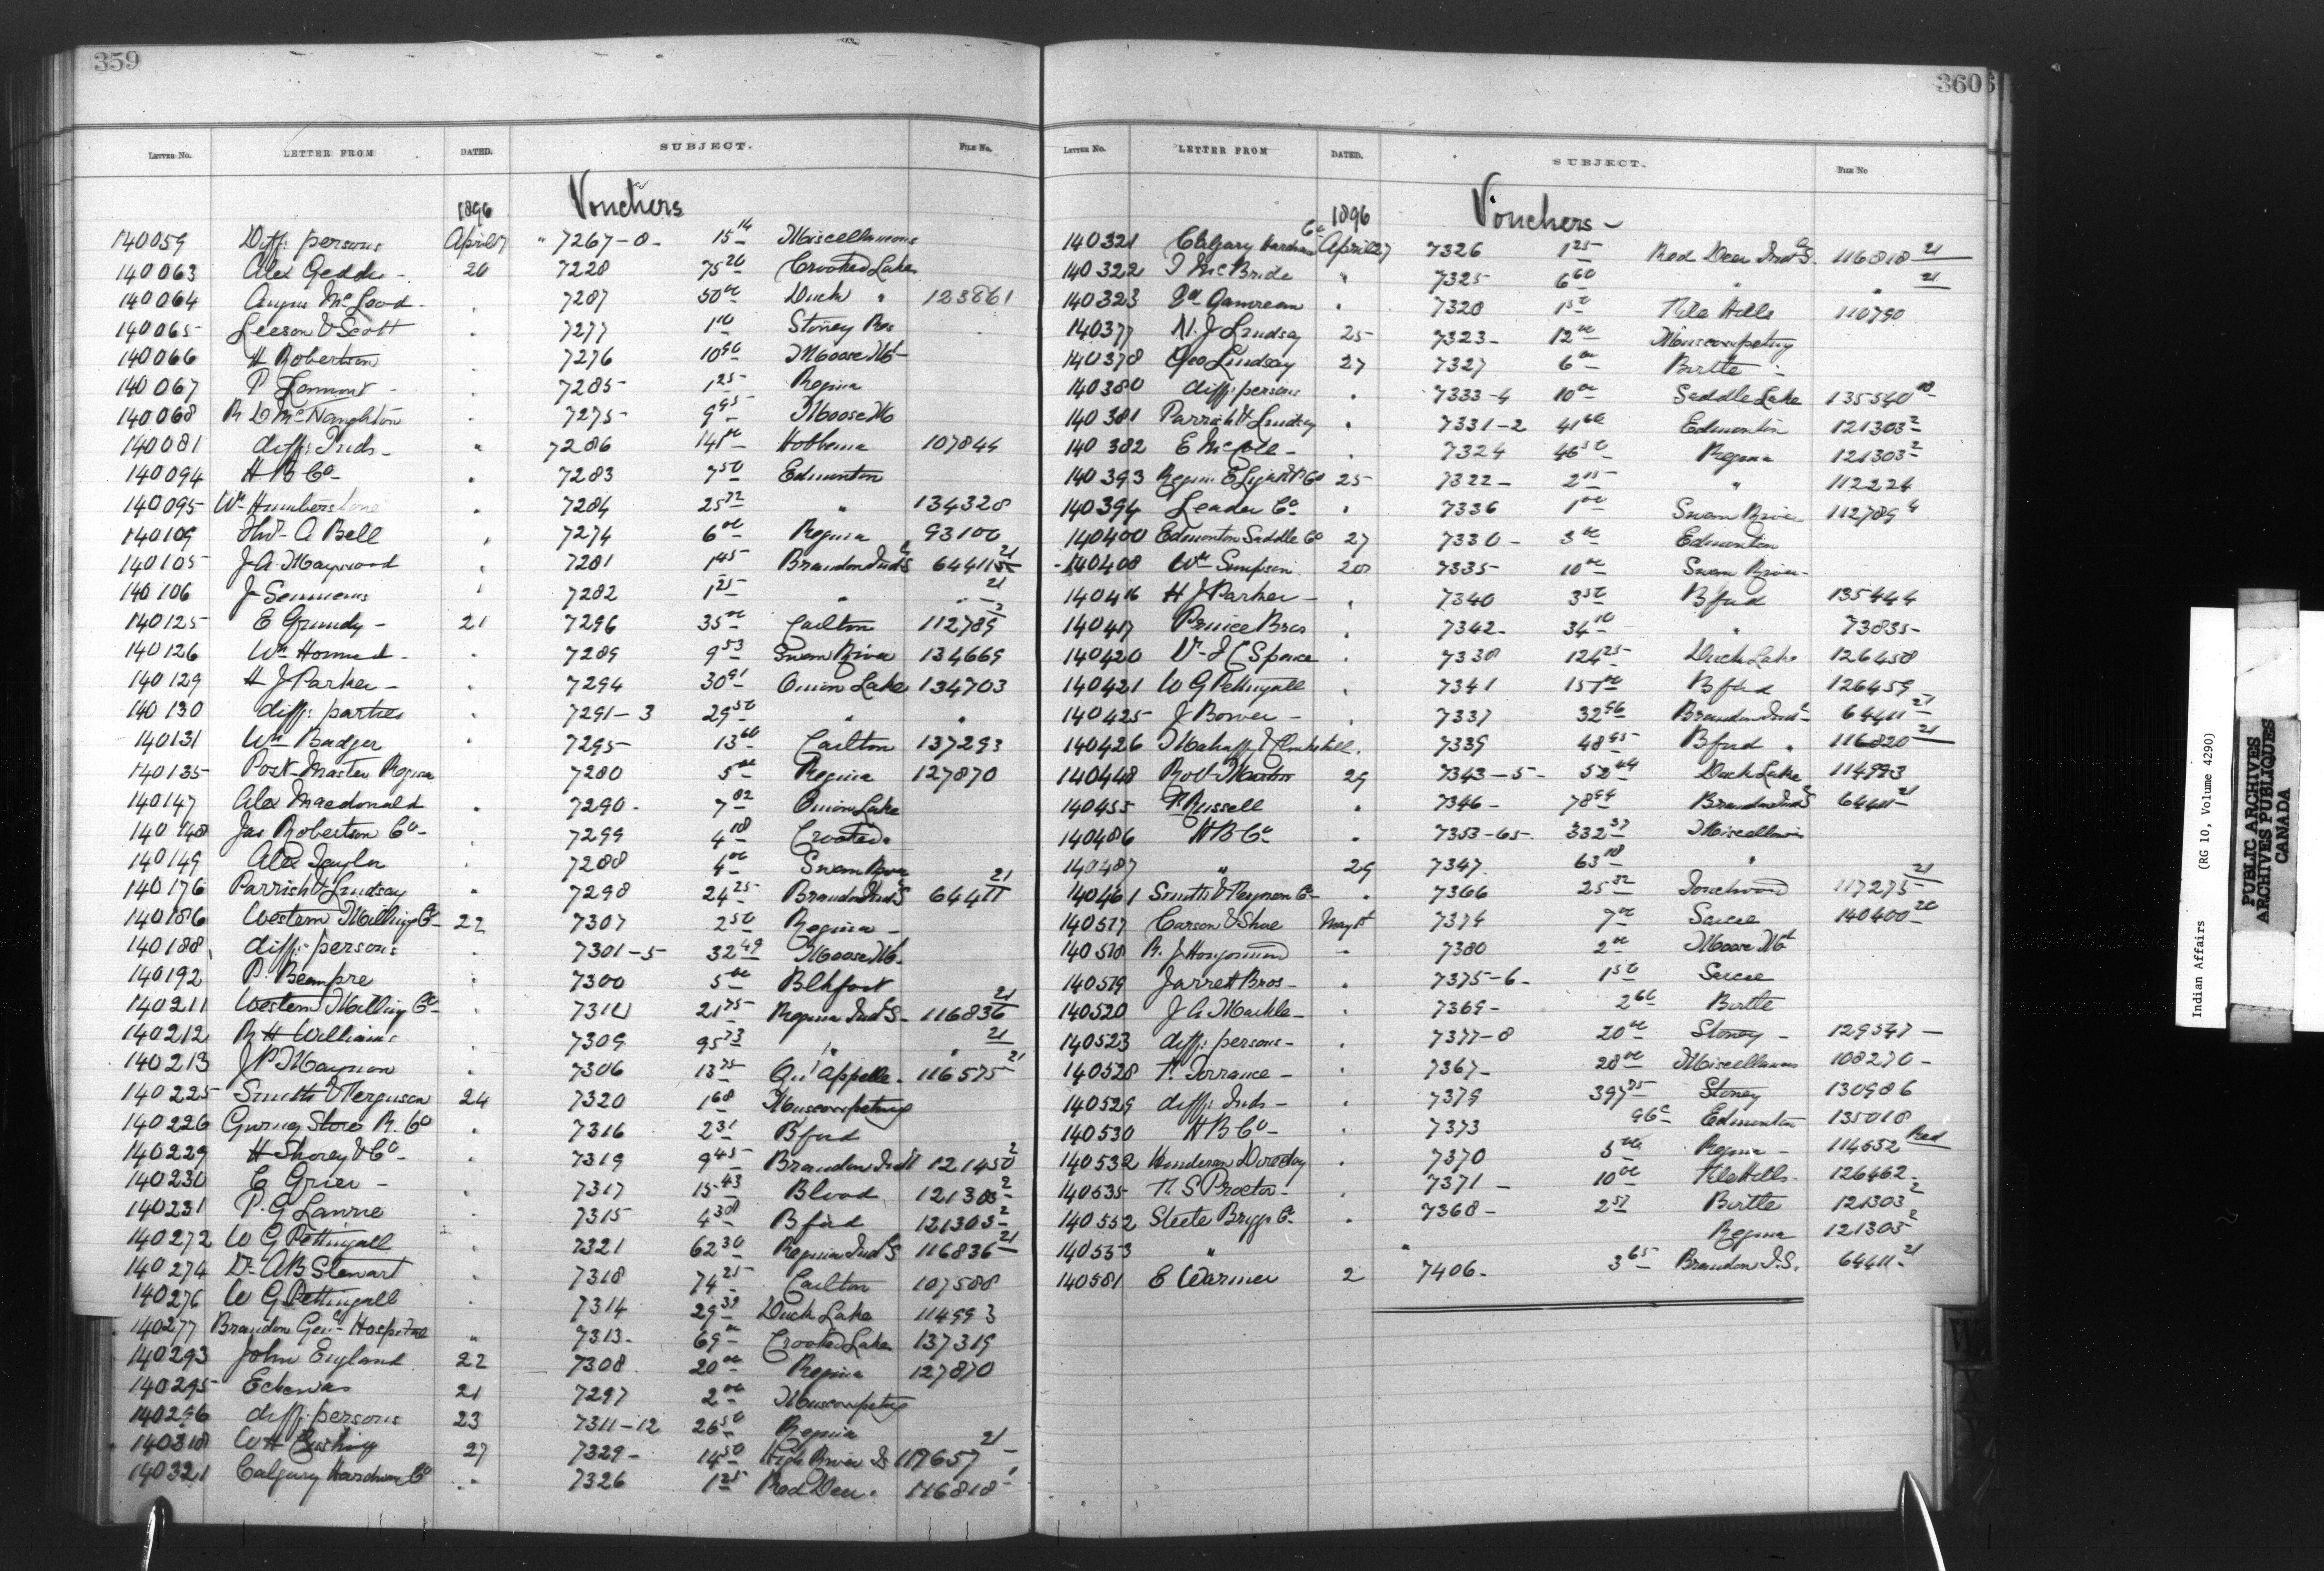 359
LETTER No. LETTER FROM DATED. SUBJECT. FILE No.
1896 Vouchers
140059 Diff: persons April 7 " 7267-8- 15 14 Miscellaneous
140063 Alex Geddes - 20 7228 75 20 Crooked Lakes
140064 Angus McLeod . 7287 50 00 Duck " 123861
140065 Leeson & Scott . 7277 1 00 Stoney Res
140066 H Robertson . 7276 10 90 Moose Mt
140067 P Lamont - . 7285 1 25 Regina
140068 R D McNaughton . 7275 9 95 Moose M
140081 diff: Inds- " 7286 141 00 Hobbema 107844
140094 H B Co . 7283 7 50 Edmonton
140095 Wm Humberstone . 7284 25 72 " 134328
140109 A Bell . 7274 6 00 Regina 93100
140105 J A Maywood . 7281 1 45 Brandon Ind S 64411 21
140106 J Semmens " 7282 1 25 " " 21
140125 E Grundy - 21 7296 35 00 Carlton 112789 2
140126 Wm . 7289 9 53 Swan River 134669
140129 H J Parker - . 7294 30 91 Onion Lake 134703
140130 diff: parties . 7291-3 29 50 " "
140131 Wm Badger . 7295 13 60 Carlton 137293
140135 Post-Master Regina 7280 5 00 Regina 127870
140147 Alex Macdonald . 7290- 7 02 Onion Lake
140148 Jas Robertson Co- . 7299 4 18 Crooked "
140149 Alex . 7288 4 00 Swan River
140176 Parrish & Lindsay " 7298 24 25 Brandon Ind S 64411 21
140186 Western Milling Co- 22 7307 2 50 Regina -
140188 diff: persons . 7301-5 32 49 Moose Mt.
140192 P. Beaupre . 7300 5 00 Blkfoot
140211 Western Milling Co- . 7310 21 75 Regina Ind S- 116836 21
140212 R H Williams . 7309 95 73 " " 21
140213 J P Maynon . 7306 13 75 Qu'Appelle. 116575 21
140225 Smith & Ferguson 24 7320 1 68 Muscowpetung
140226 Gurney Stove R. Co . 7316 2 31 Bford
140229 H Shorey & Co- . 7319 9 45 Brandon Ind S 121450 2
140230 E Grier - . 7317 15 43 Blood 121303 2
140231 P. G Lawrie . 7315 4 38 Bford 121303 2
140272 W G Pettingall . 7321 62 30 Regina Ind S 116836 21
140274 Dr A B Stewart . 7318 74 25 Carlton 107588
140276 W G Pettingall . 7314 29 39 Duck Lake 114993
140277 Brandon Gen- Hospital " 7313- 69 00 Crooked Lakes 137319
140293 John England 22 7308 20 00 Regina 127870
140295 21 7297 2 00 Muscowpetung
140296 diff: persons 23 7311-12 26 50 Regina
140318 W H Cushing 27 7329- 14 50 High River IS 117657 21
140321 Calgary Hardware Co " 7326 1 25 Red Deer. 116818
360
LETTER No. LETTER FROM DATED. SUBJECT. FILE No
1896 Vouchers-
140321 Calgary Hardware Co April 27 7326 1 25 Red Deer Ind S. 116818 21
140322 J McBride " 7325 6 60 " " 21
140323 Gamreau . 7328 1 50 File Hills 110790
140377 N. J Lindsay 25 7323- 12 00 Muscowpetung
140378 Geo Lindsay 27 7327 6 00 Birtle -
140380 diff: persons . 7333-4 10 00 Saddle Lake 135540
140381 Parrish & Lindsay . 7331-2 41 60 Edmonton 121303 2
140382 E McCole - . 7324 46 50 Regina 121303 2
140393 Regina E Light & P Co 25 7322- 2 15 " 112224
140394 Leader Co . 7336 1 00 Swan River 112789 4
140400 Edmonton Saddle Co 27 7330- 3 00 Edmonton
140408 Wm Simpson 28 7335 10 00 Swan River-
140416 H J Parker - . 7340 3 50 Bford 135444
140417 Prince Bros . 7342- 34 10 " 73835-
140420 Dr J C Spence . 7338 124 25 Duck Lake 126458
140421 W G Pettingall . 7341 157 00 Bford 126459
140425 J Bower - . 7337 32 96 Brandon Ind S 64411 21
140426 Mahaffy & Clinkskill. 7339 48 95 Bford " 116820 21
140448 Robt Martin 29 7343-5- 52 44 Duck Lake 114993
140455 N Russell . 7346- 78 94 Brandon Ind S 64411 21
140486 H B Co . 7353-65- 332 37 Miscellaneous
140487 " 29 7347. 63 18 "
140461 Smith & Ferguson Co- . 7366 25 32 Touchwood 117275 21
140517 Carson & Shore May 1st 7374 7 00 Sarcee 140400 20
140518 R. J. - 7380 2 00 Moose Mt
140519 Jarrett Bros- . 7375-6- 1 50 Sarcee
140520 J A Markle- . 7369- 2 60 Birtle
140523 diff: persons- . 7377-8 20 00 Stoney - 129547-
140528 F. Torrance - . 7367- 28 00 Miscellaneous 108270-
140529 diff: Inds - . 7379 397 75 Stoney 130986
140530 H B Co - . 7373 96c Edmonton 135018
140532 Henderson Directory . 7370 5 00 Regina - 114652 Red
140535 N. S Proctor- . 7371- 10 00 File Hills. 126462-
140552 Steele Briggs Co- . 7368- 2 57 Birtle 121303 2
140553 " " Regina 121303 2
140581 E Warner 2 7406- 3 65 Brandon I.S. 64411 21
Indian Affairs (RG 10, Volume 4290)
PUBLIC ARCHIVES
ARCHIVES PUBLIQUES
CANADA